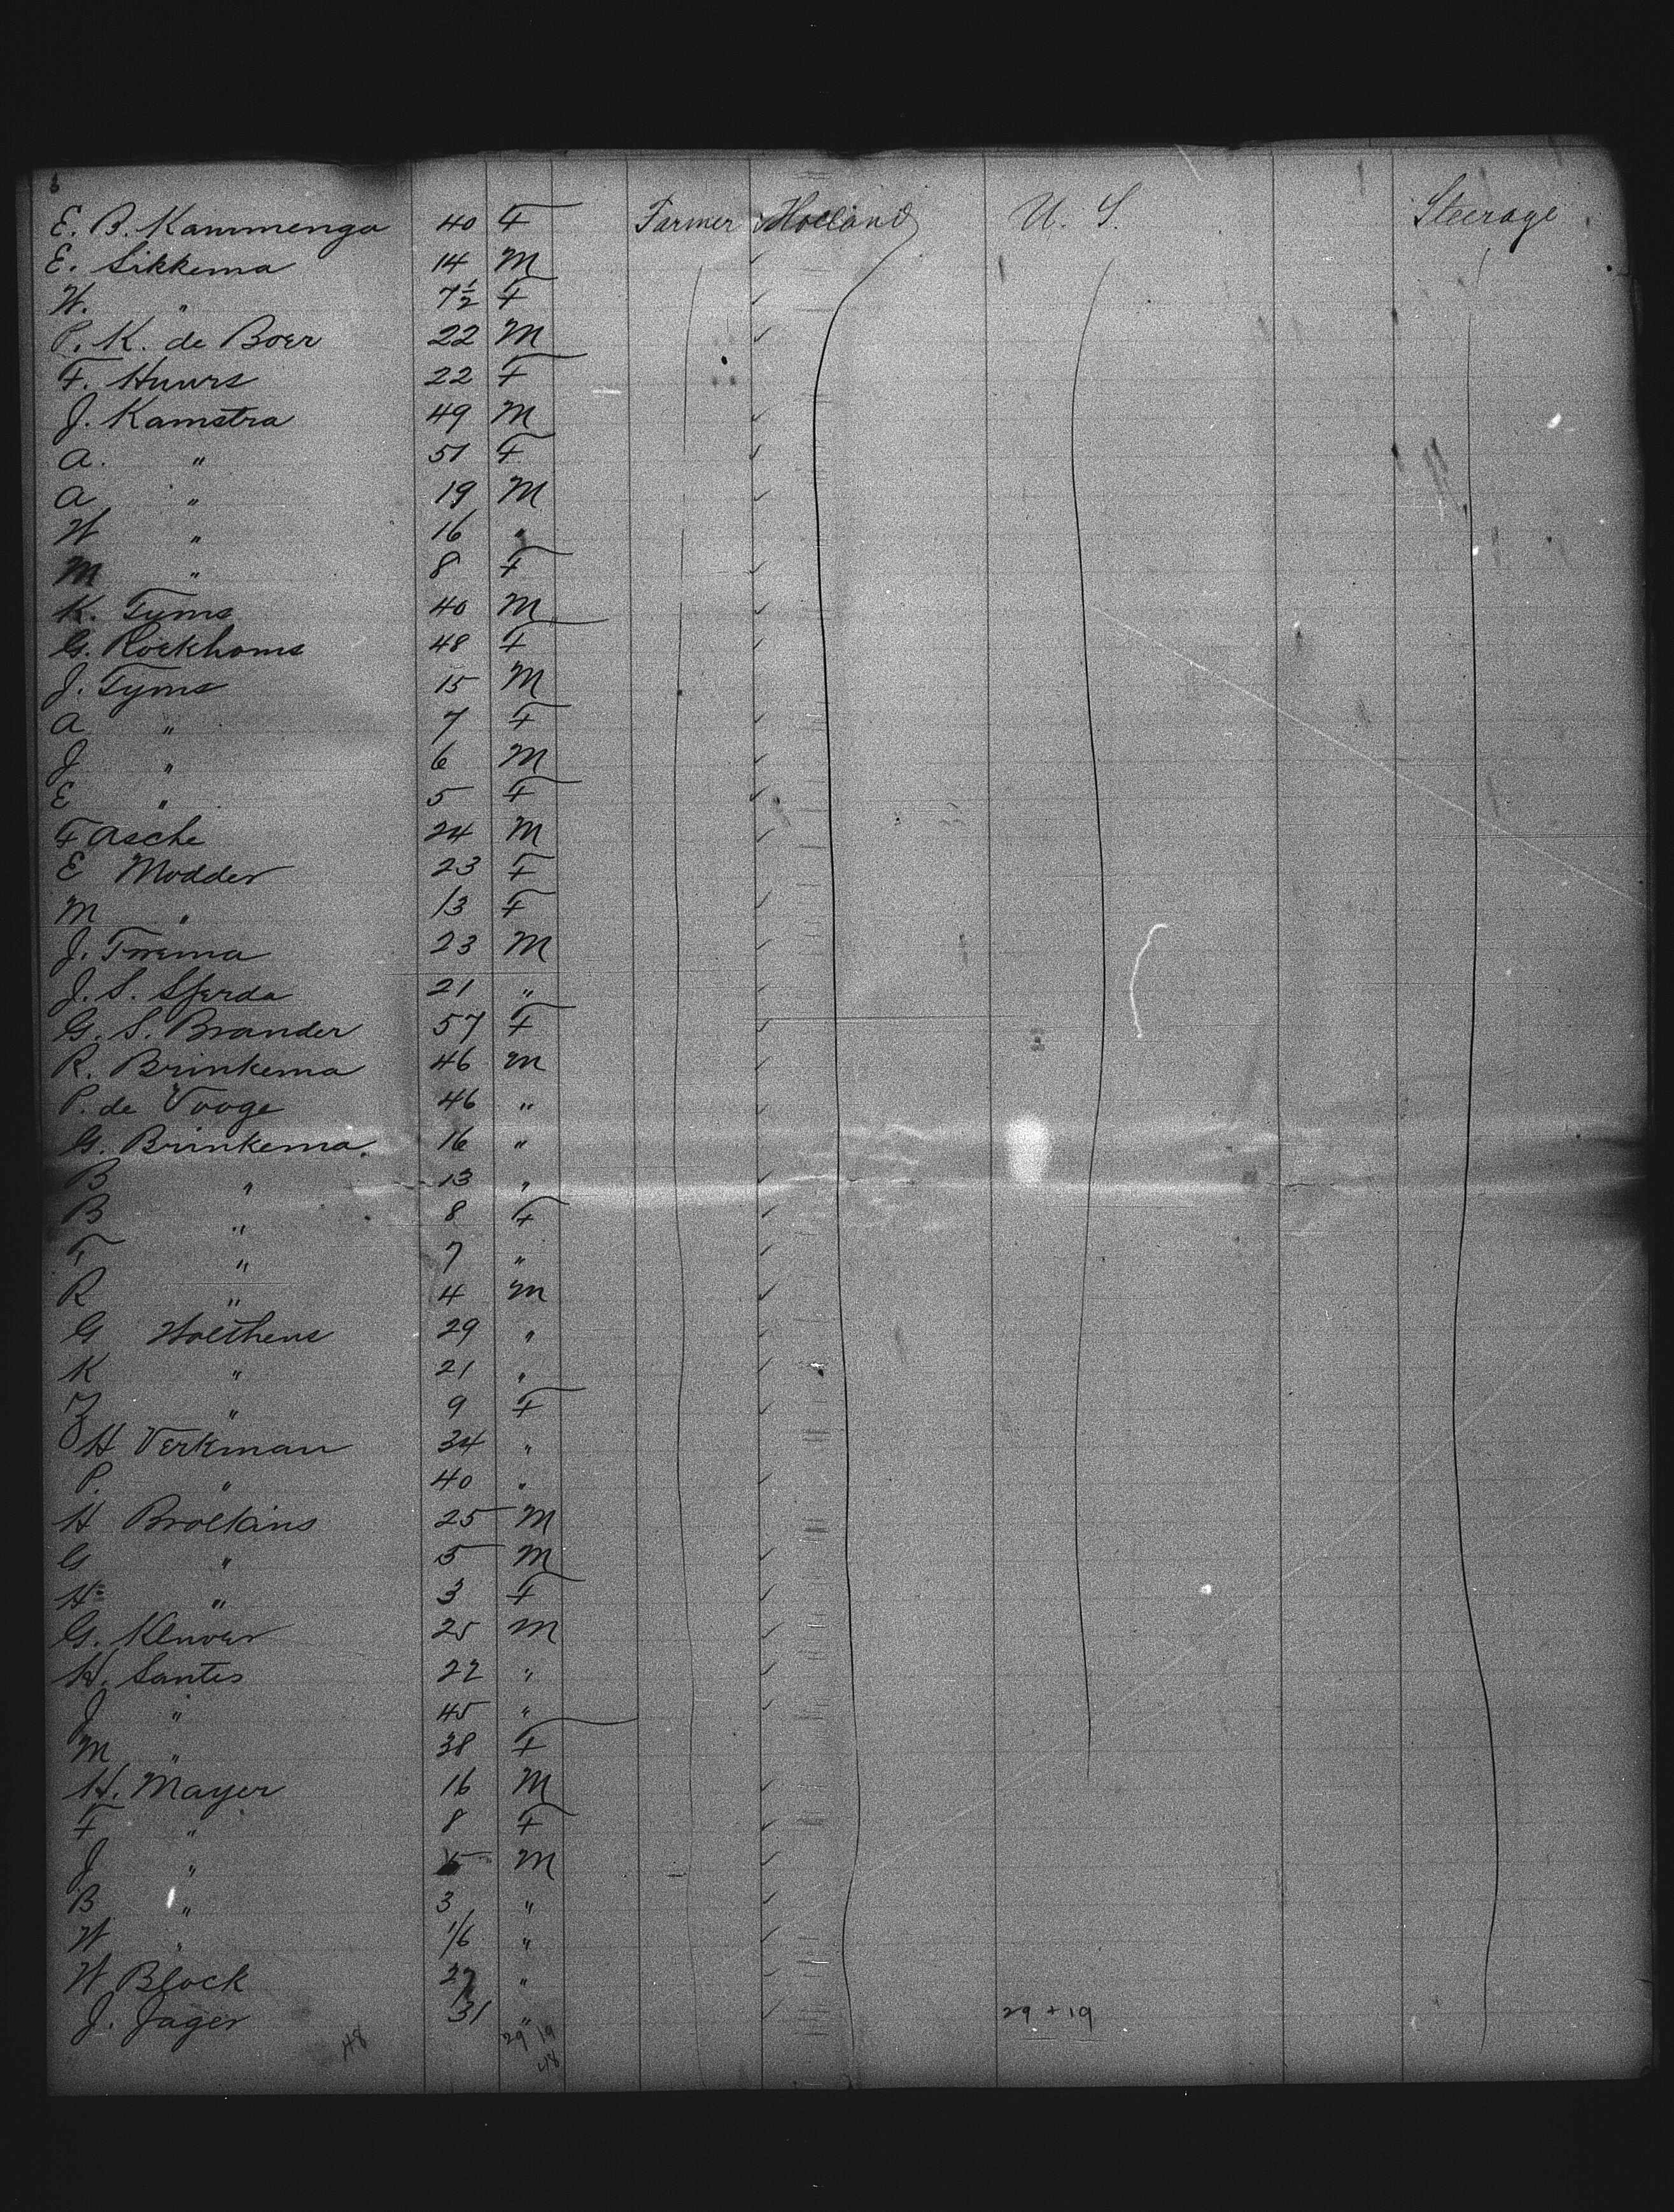 E. B. Kammenga 40 F Farmer Holland U. S. Steerage
E. Sikkema 14 M
W. " 7½ F
P. K. de Boer 22 M
F. Huurs 22 F
J. Kamstra 49 M
A. " 51 F
A " 19 M
W " 16 "
M " 8 F
K. Tyms 40 M
G. Roekhoms 48 F
J. Tyms 15 M
A " 7 F
J " 6 M
E " 5 F
F Asche 24 M
E Modder 23 F
M " 13 F
J. 23 M
J. S. Sferda 21 "
G. S. Brander 57 F
R. Brinkema 46 M
P. de Vooge 46 "
G. Brinkema. 16 "
B " 13 "
B " 8 F
F " 7 "
R " 4 M
G Holthens 29 "
K " 21 "
Z " 9 F
H Verkman 34 "
P. " 40 "
H 25 M
G " 5 M
H " 3 F
G. Kluver 25 M
H. Santes 22 "
J " 45 "
M " 38 F
H. Mayer 16 M
F " 8 F
J " 5 M
B " 3 "
W " 1/6 "
W Block 27 "
J. Jager 31 " 29 + 19
48 29 19
48